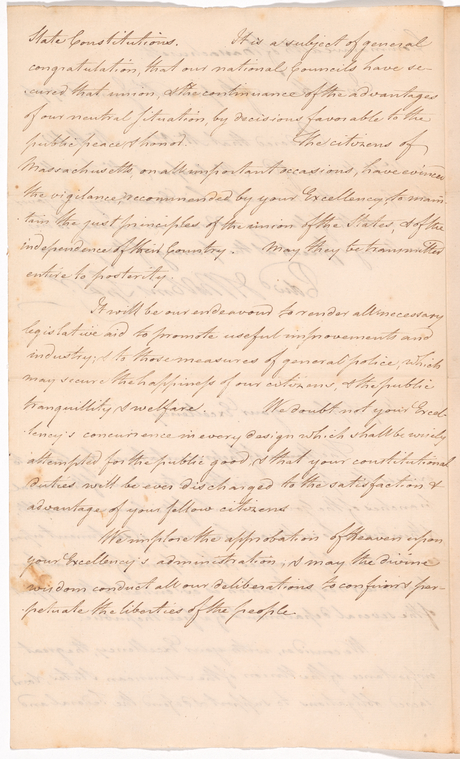 State Constitutions. It is a subject of general
congratulation, that our national Councils have se-
cured that union, & the continuance of the advantages
of our neutral situation, by decisions favorable to the
public peace & honor. The citizens of
Massachusetts, on all important occasions, have evinced
the vigilance, recommended by your Excellency, to main-
tain the just principles of the union of the States, & of the
independence of their Country. May they be transmitted
entire to posterity.
It will be our endeavour to render all necessary
legislative aid to promote useful improvements and
industry; & to those measures of general police, which
may secure the happiness of our citizens, & the public
tranquillity & welfare. We doubt not your Excel-
lency's concurrence in every design which shall be wisely
attempted for the public good, & that your constitutional
duties will be ever discharged to the satisfaction &
advantage of your fellow citizens
We implore the approbation of Heaven upon
your Excellency's administration, & may the divine
wisdom conduct all our deliberations to confirm & per-
petuate the liberties of the people.